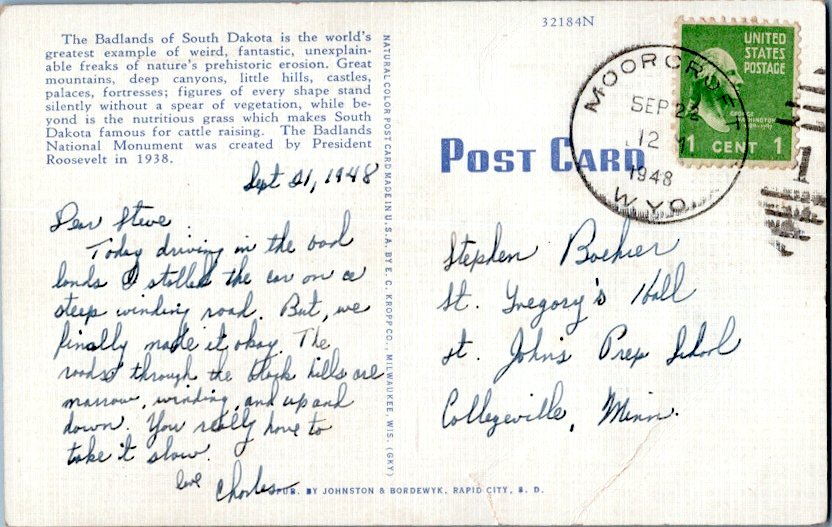 The Badlands of South Dakota is the world's
greatest example of weird, fantastic, unexplain-
able freaks of nature's prehistoric erosion. Great
mountains, deep canyons, little hills, castles,
palaces, fortresses; figures of every shape stand
silently without a spear of vegetation, while be-
yond is the nutritious grass which makes South
Dakota famous for cattle raising. The Badlands
National Monument was created by President
Roosevelt in 1938.
Sept 21, 1948
Dear Steve
Today driving in the bad
lands I stalled the car on a
steep winding road. But, we
finally made it okay. The
roads through the black hills are
narrow, winding, and up and
down. You really have to
take it slow.
love
Charles
NATURAL COLOR POST CARD MADE IN U.S.A. BY E. C. KROPP CO., MILWAUKEE, WIS. (GKY)
PUB. BY JOHNSTON & BORDEWYK, RAPID CITY, S. D.
32184N
POST CARD
MOORCROFT
SEP 22
12 M
1948
WYO.
UNITED
STATES
POSTAGE
GEORGE
WASHINGTON
1 CENT 1
1
Stephen
St. Gregory's Hall
St. John's Prep School
Collegeville, Minn.